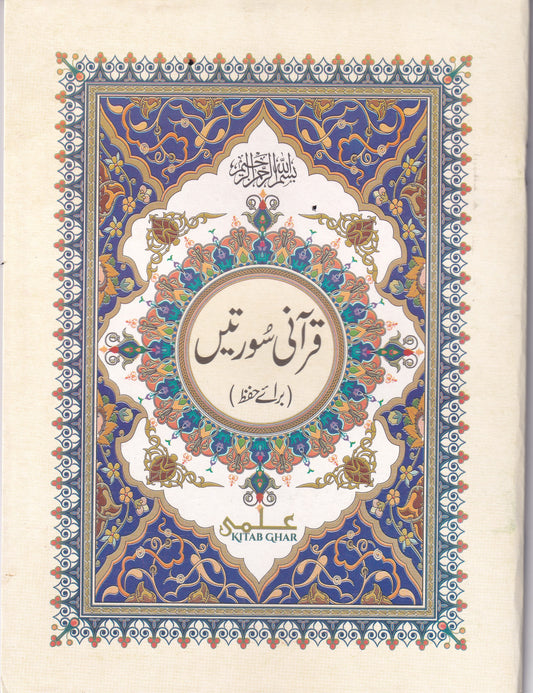 بسم الله الرحمن الرحيم
قرآنی سُورتیں
(برائے حفظ)
علمی
KITAB GHAR